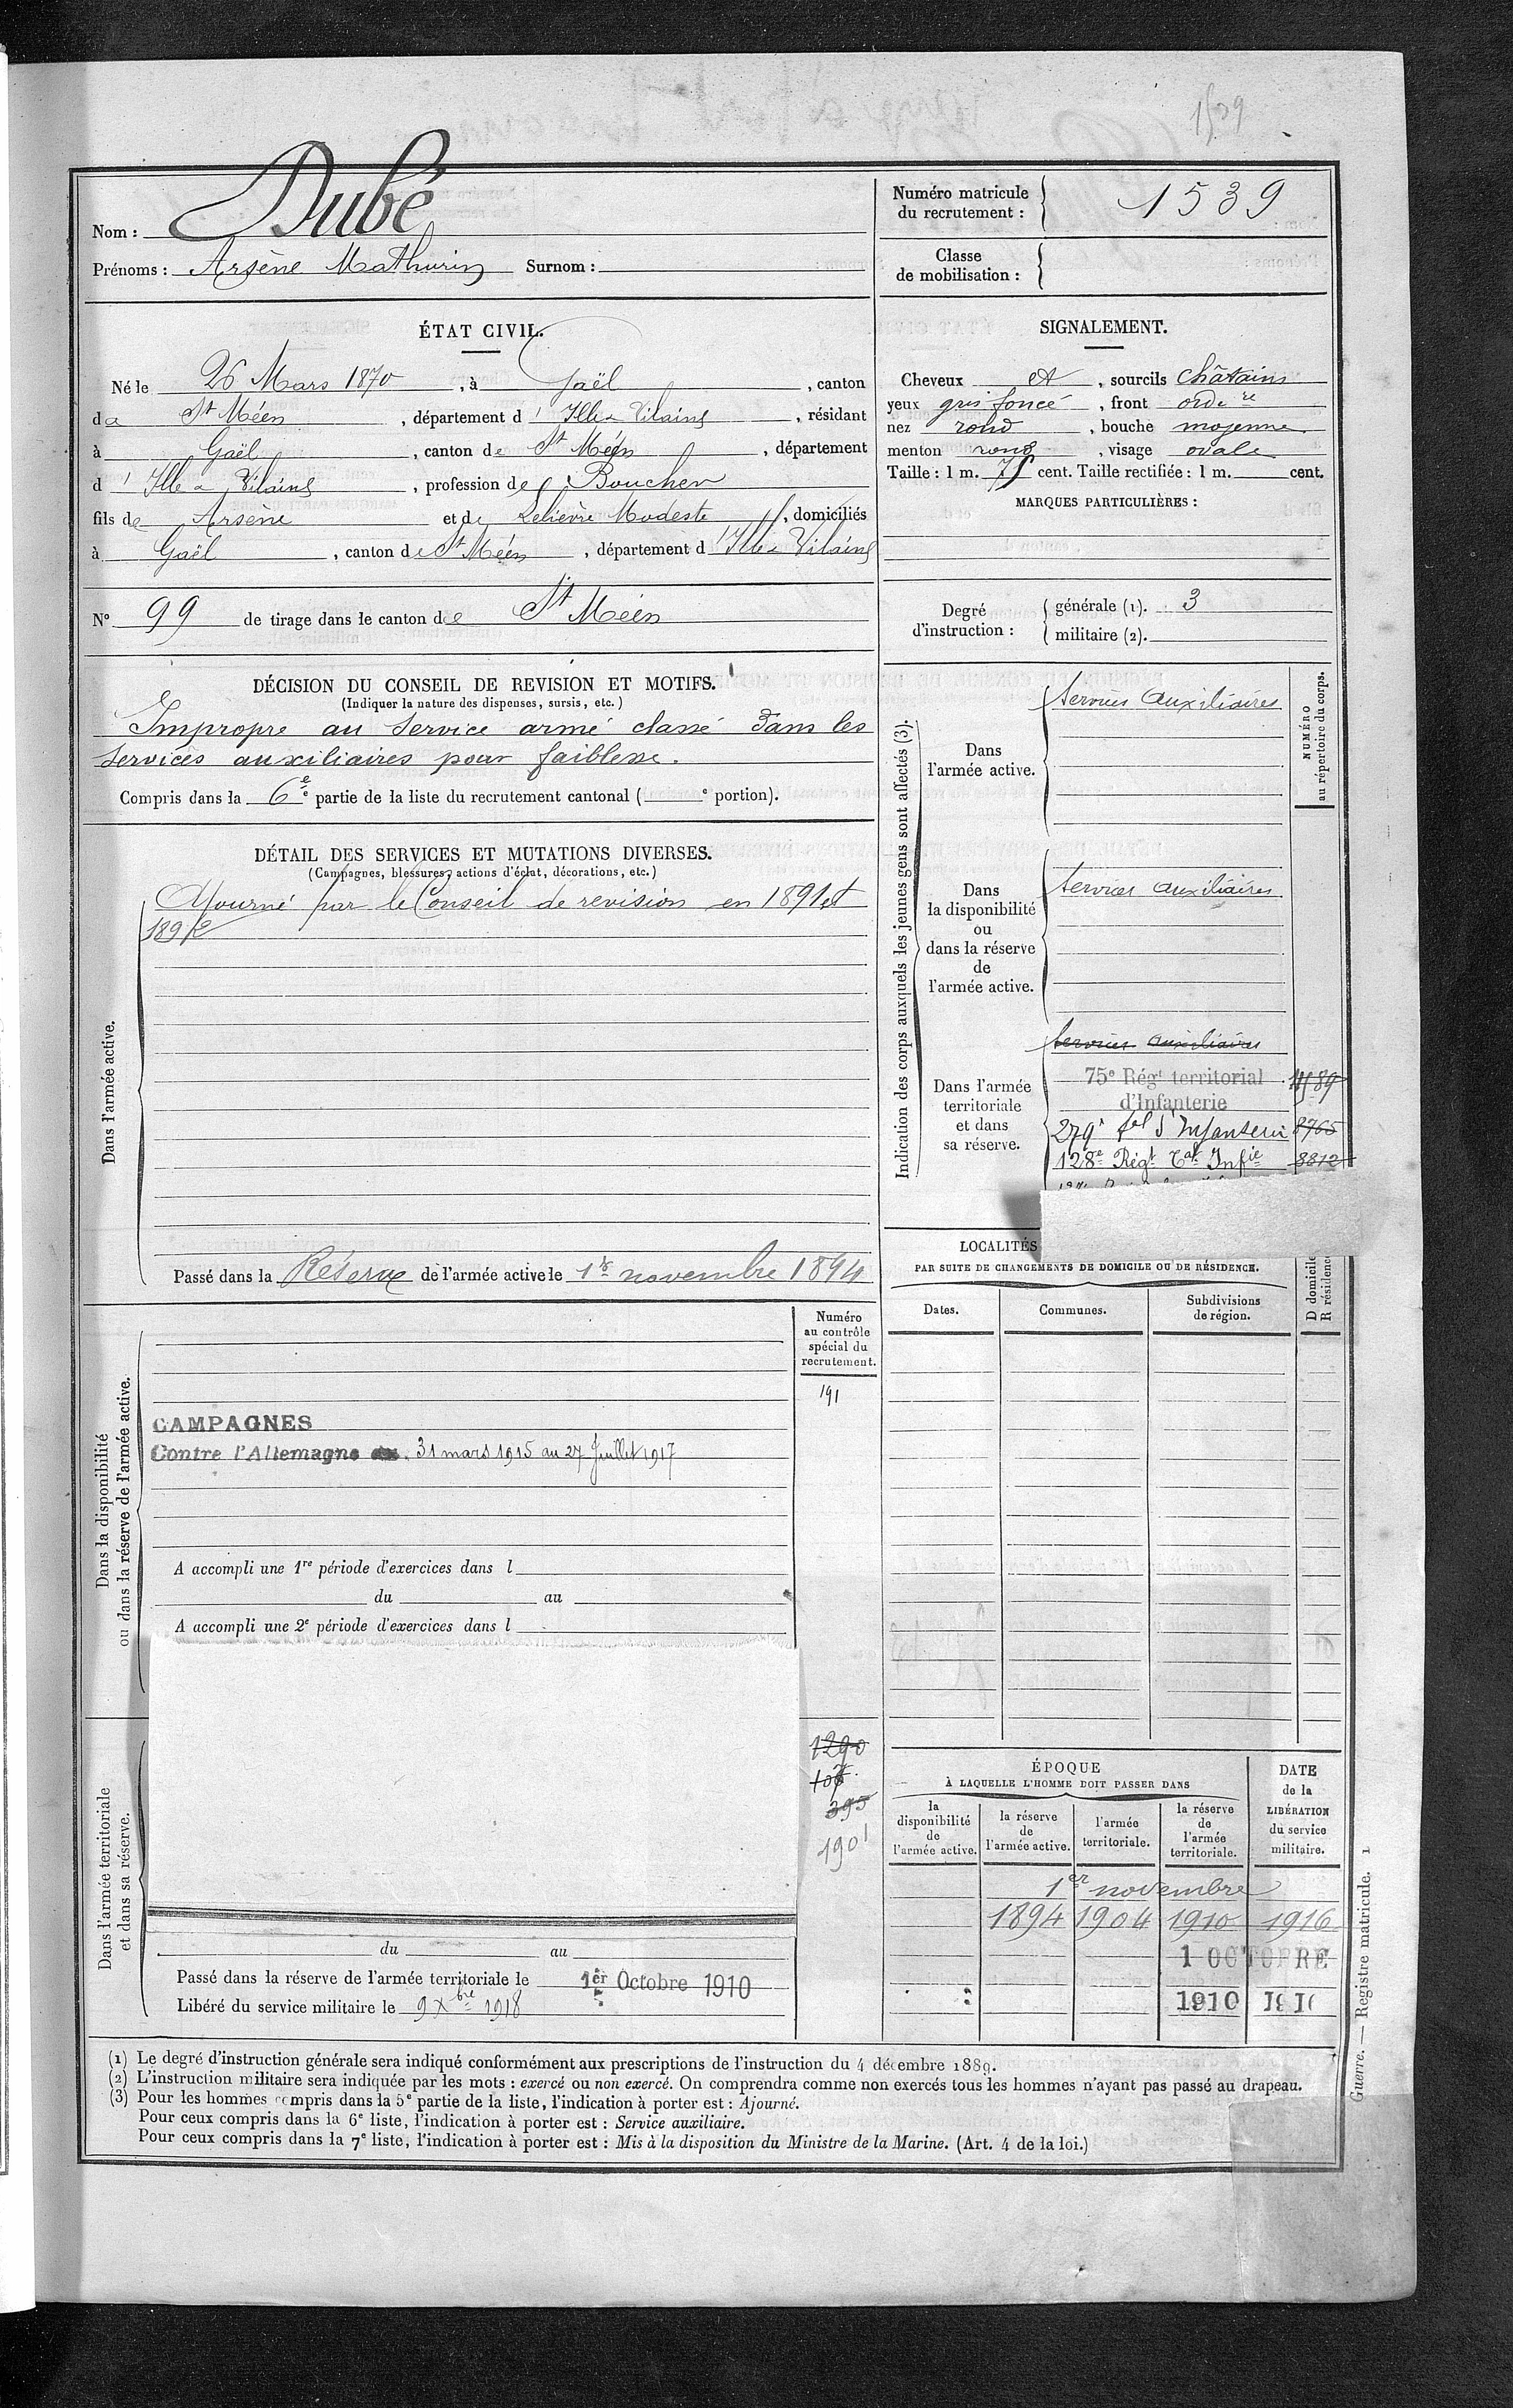 1539
Nom : Dubé
Prénoms : Arsène Mathurin Surnom :
Numéro matricule
du recrutement : 1539
Classe
de mobilisation :
ÉTAT CIVIL.
Né le 26 Mars 1870, à Gaël, canton
de St Méen, département d'Ille & Vilaine, résidant
à Gaël, canton de St Méen, département
d'Ille & Vilaine, profession de Boucher
fils de Arsène et de Lelièvre Modeste, domiciliés
à Gaël, canton de St Méen, département d'Ille & Vilaine
N° 99 de tirage dans le canton de St Méen
SIGNALEMENT.
Cheveux et, sourcils châtains
yeux gris foncé, front ordre
nez rond, bouche moyenne
menton rond, visage ovale
Taille : 1 m. 75 cent. Taille rectifiée : 1 m. cent.
MARQUES PARTICULIÈRES :
Degré
d'instruction :
générale (1). 3
militaire (2).
DÉCISION DU CONSEIL DE REVISION ET MOTIFS.
(Indiquer la nature des dispenses, sursis, etc.)
Impropre au service armé classé dans les
services auxiliaires pour faiblesse.
Compris dans la 6e partie de la liste du recrutement cantonal ( e portion).
DÉTAIL DES SERVICES ET MUTATIONS DIVERSES.
(Campagnes, blessures, actions d'éclat, décorations, etc.)
Dans l'armée active.
Ajourné par le Conseil de revision en 1891 et
1892
Passé dans la Réserve de l'armée active le 1er novembre 1894
Indication des corps auxquels les jeunes gens sont affectés (3).
NUMÉRO
au répertoire du corps.
Dans
l'armée active.
Services Auxiliaires
Dans
la disponibilité
ou
dans la réserve
de
l'armée active.
Services auxiliaires
Dans l'armée
territoriale
et dans
sa réserve.
Services auxiliaires
75e Régt territorial
d'Infanterie
279e d'Infanterie 8765
128e Régt Tal Infie 8812
LOCALITÉS
PAR SUITE DE CHANGEMENTS DE DOMICILE OU DE RÉSIDENCE.
Dates.
Communes.
Subdivisions
de région.
D domicile
R résidence
Numéro
au contrôle
spécial du
recrutement.
191
Dans la disponibilité
ou dans la réserve de l'armée active.
CAMPAGNES
Contre l'Allemagne du 31 mars 1915 au 27 Juillet 1917
A accompli une 1re période d'exercices dans l
du au
A accompli une 2e période d'exercices dans l
1290
395
1901
Dans l'armée territoriale
et dans sa réserve.
du au
Passé dans la réserve de l'armée territoriale le 1er Octobre 1910
Libéré du service militaire le 9 Xbre 1918
ÉPOQUE
À LAQUELLE L'HOMME DOIT PASSER DANS
la
disponibilité
de
l'armée active.
la réserve
de
l'armée active.
l'armée
territoriale.
la réserve
de
l'armée
territoriale.
DATE
de la
LIBÉRATION
du service
militaire.
1er novembre
1894 1904 1910 1916
1 OCTOBRE
1910
Guerre. — Registre matricule. 1
(1) Le degré d'instruction générale sera indiqué conformément aux prescriptions de l'instruction du 4 décembre 1889.
(2) L'instruction militaire sera indiquée par les mots : exercé ou non exercé. On comprendra comme non exercés tous les hommes n'ayant pas passé au drapeau.
(3) Pour les hommes compris dans la 5e partie de la liste, l'indication à porter est : Ajourné.
Pour ceux compris dans la 6e liste, l'indication à porter est : Service auxiliaire.
Pour ceux compris dans la 7e liste, l'indication à porter est : Mis à la disposition du Ministre de la Marine. (Art. 4 de la loi.)